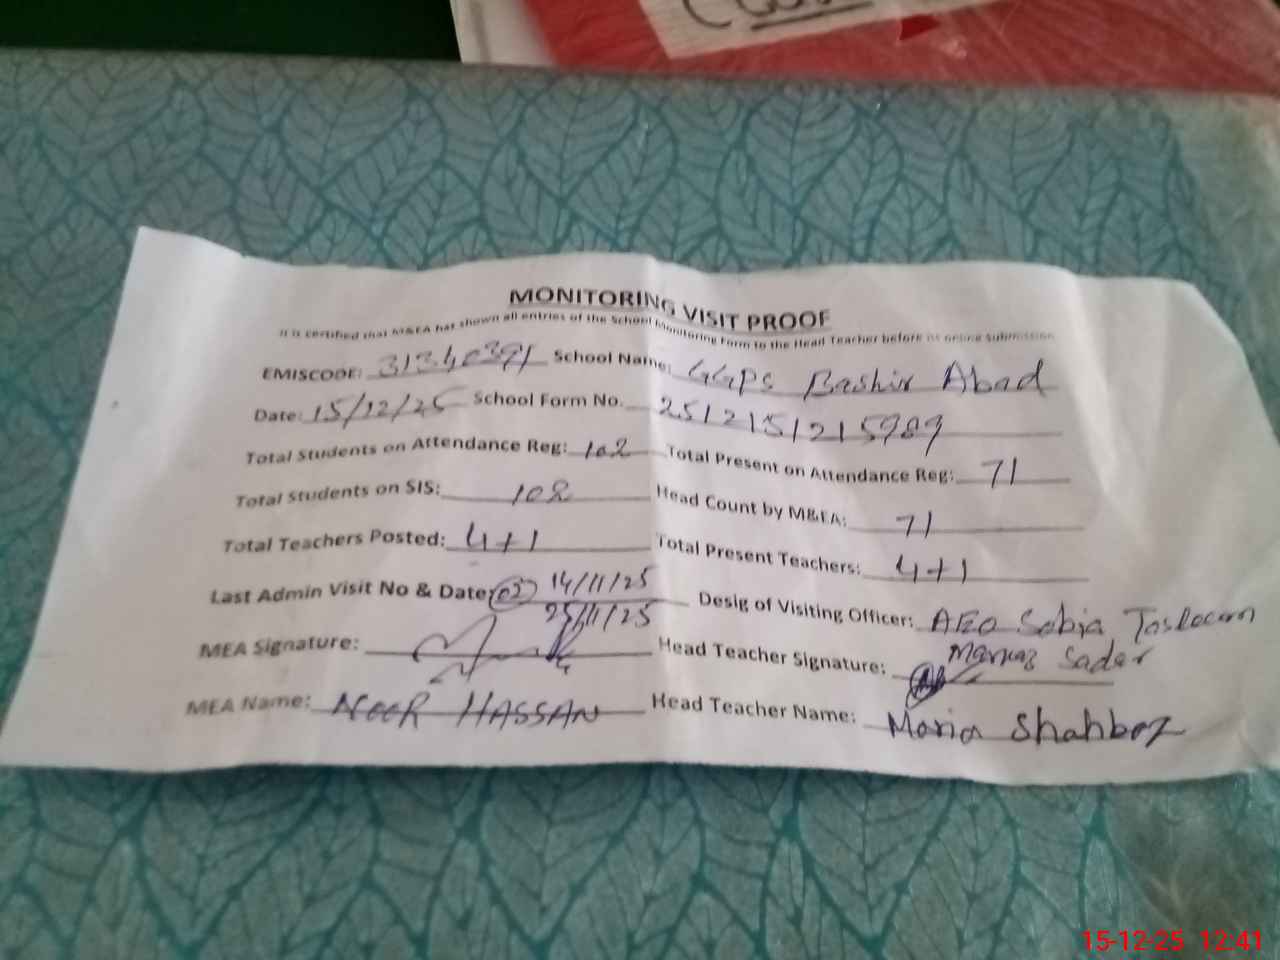 MONITORING VISIT PROOF
It is certified that M&EA has shown all entries of the School Monitoring Form to the Head Teacher before its online Submission
EMISCODE: 31340391 School Name: GGPS Bashir Abad
Date: 15/12/25 School Form No. 2512151215989
Total Students on Attendance Reg: 102 Total Present on Attendance Reg: 71
Total Students on SIS: 102 Head Count by M&EA: 71
Total Teachers Posted: 4+1 Total Present Teachers: 4+1
Last Admin Visit No & Date: 02 14/11/25 Desig of Visiting Officer: AEO Sobia
25/11/25 Markaz Sadar
MEA Signature: Head Teacher Signature:
MEA Name: NOOR HASSAN Head Teacher Name: Maria Shahbaz
15-12-25 12:41